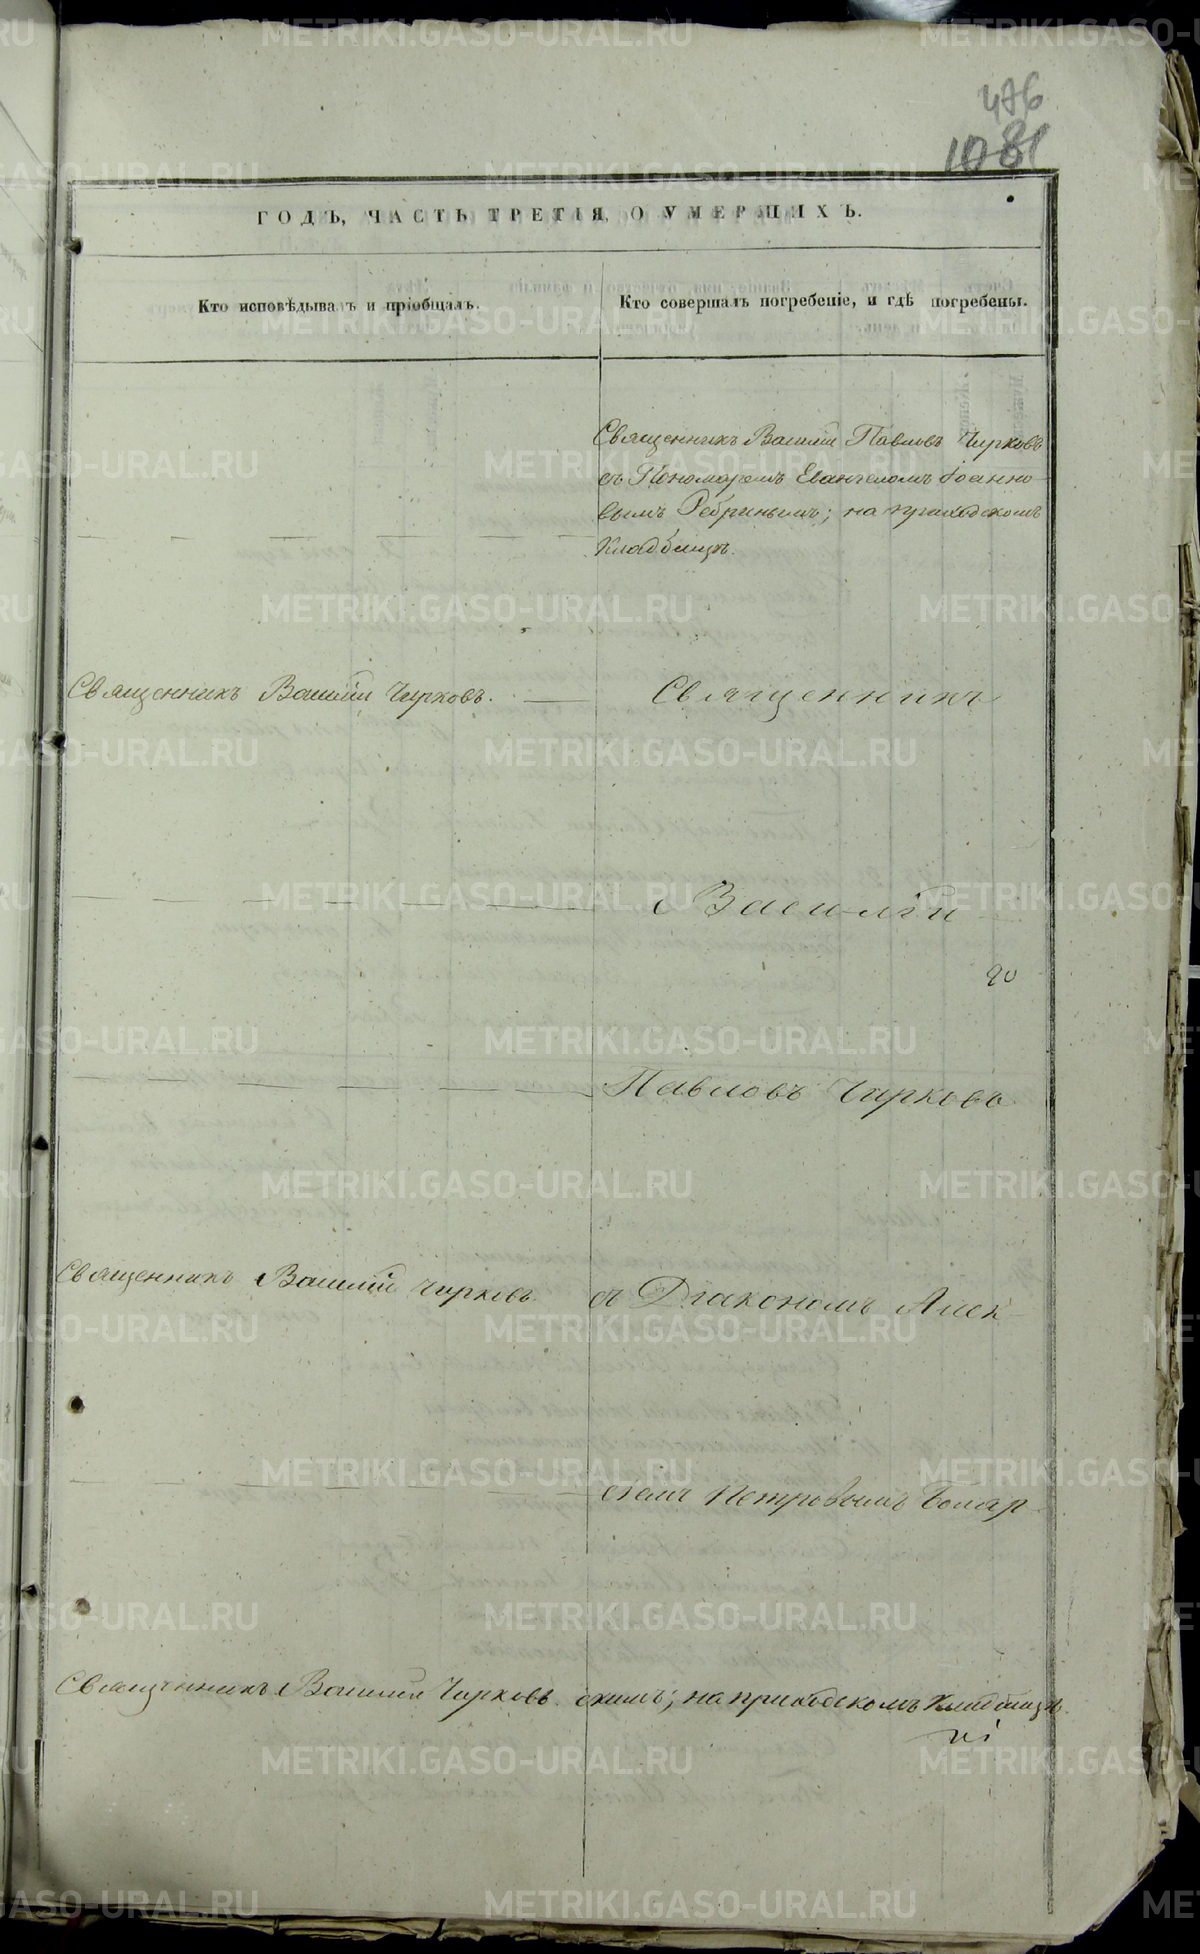 476
1081
ГОДЪ, ЧАСТЬ ТРЕТІЯ, О УМЕРШИХЪ.
Кто исповѣдывалъ и пріобщалъ.
Кто совершалъ погребеніе, и гдѣ погребены.
Священникъ Василій Павловъ Чирковъ
съ Пономаремъ Евангеломъ Іоанно-
вымъ Ребринымъ; на приходскомъ
Кладбищѣ.
Священникъ Василій Чирковъ.
Священникъ
Василій
Павловъ Чирковъ
Священникъ Василій Чирковъ.
съ Діакономъ Алек-
сѣемъ Петровымъ Бомар-
Священникъ Василій Чирковъ.
скимъ; на приходскомъ кладбищѣ.
METRIKI.GASO-URAL.RU